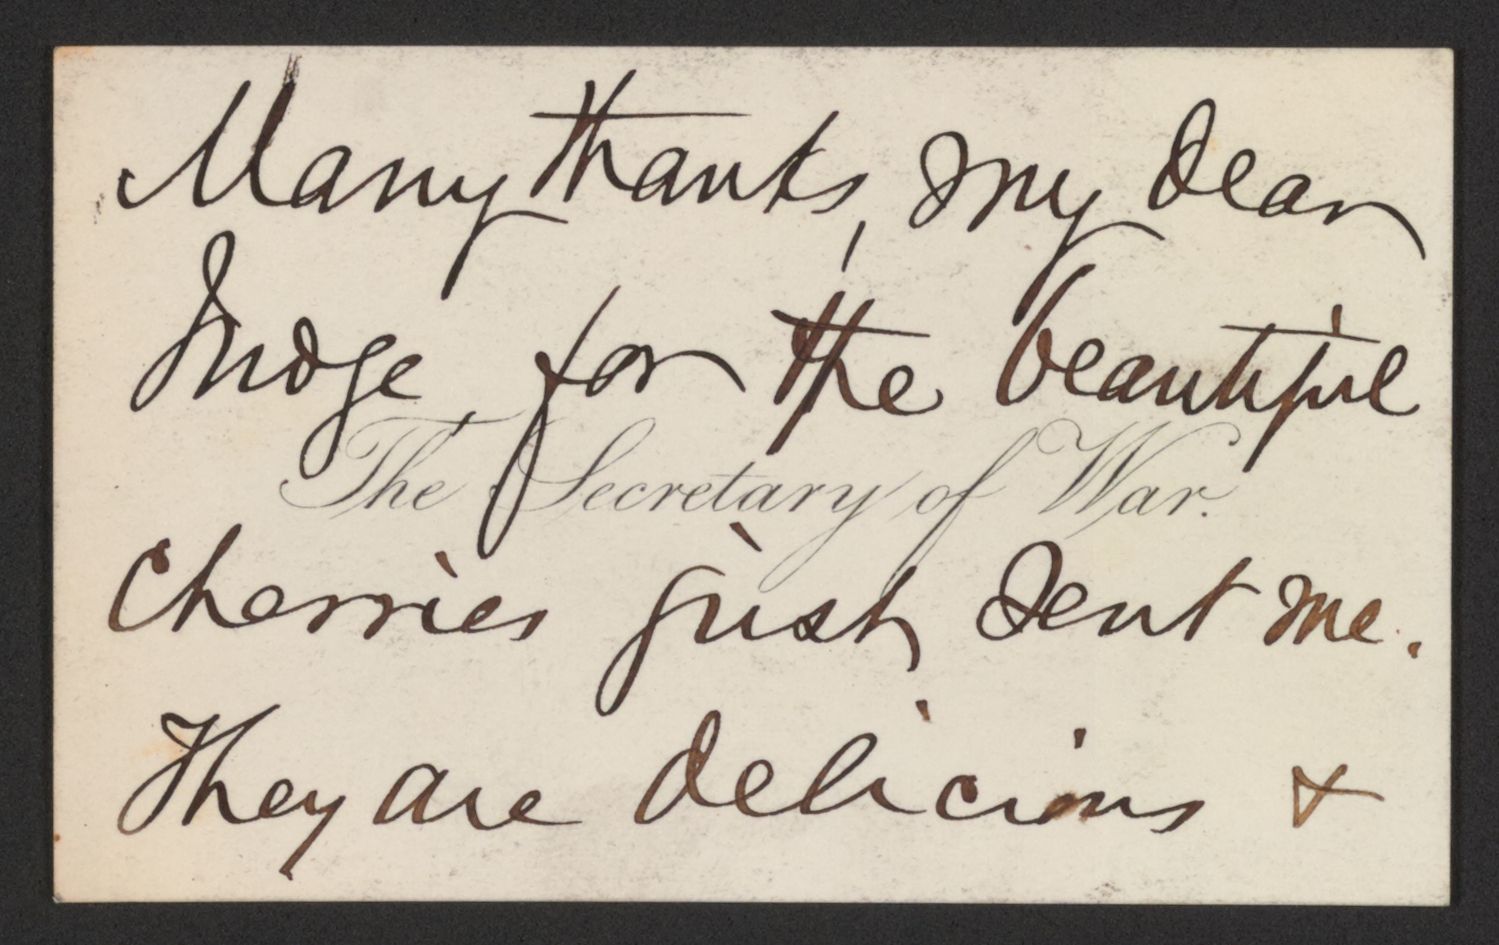 Many thanks, my dear
Judge for the beautiful
The Secretary of War.
Cherries just sent me.
They are delicious &